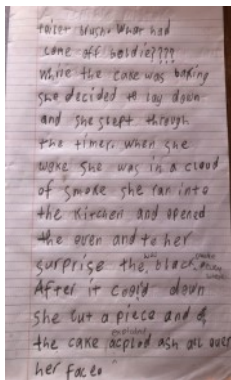 toilet brush. What had
come off baldie????
While the cake was baking
she decided to lay down
and she slept through
the timer, when she
woke she was in a cloud
of smoke she ran into
the kitchen and opened
the oven and to her
surprise the was black
After it coold down
she cut a piece and
the cake exploded acplod ash all over
her face